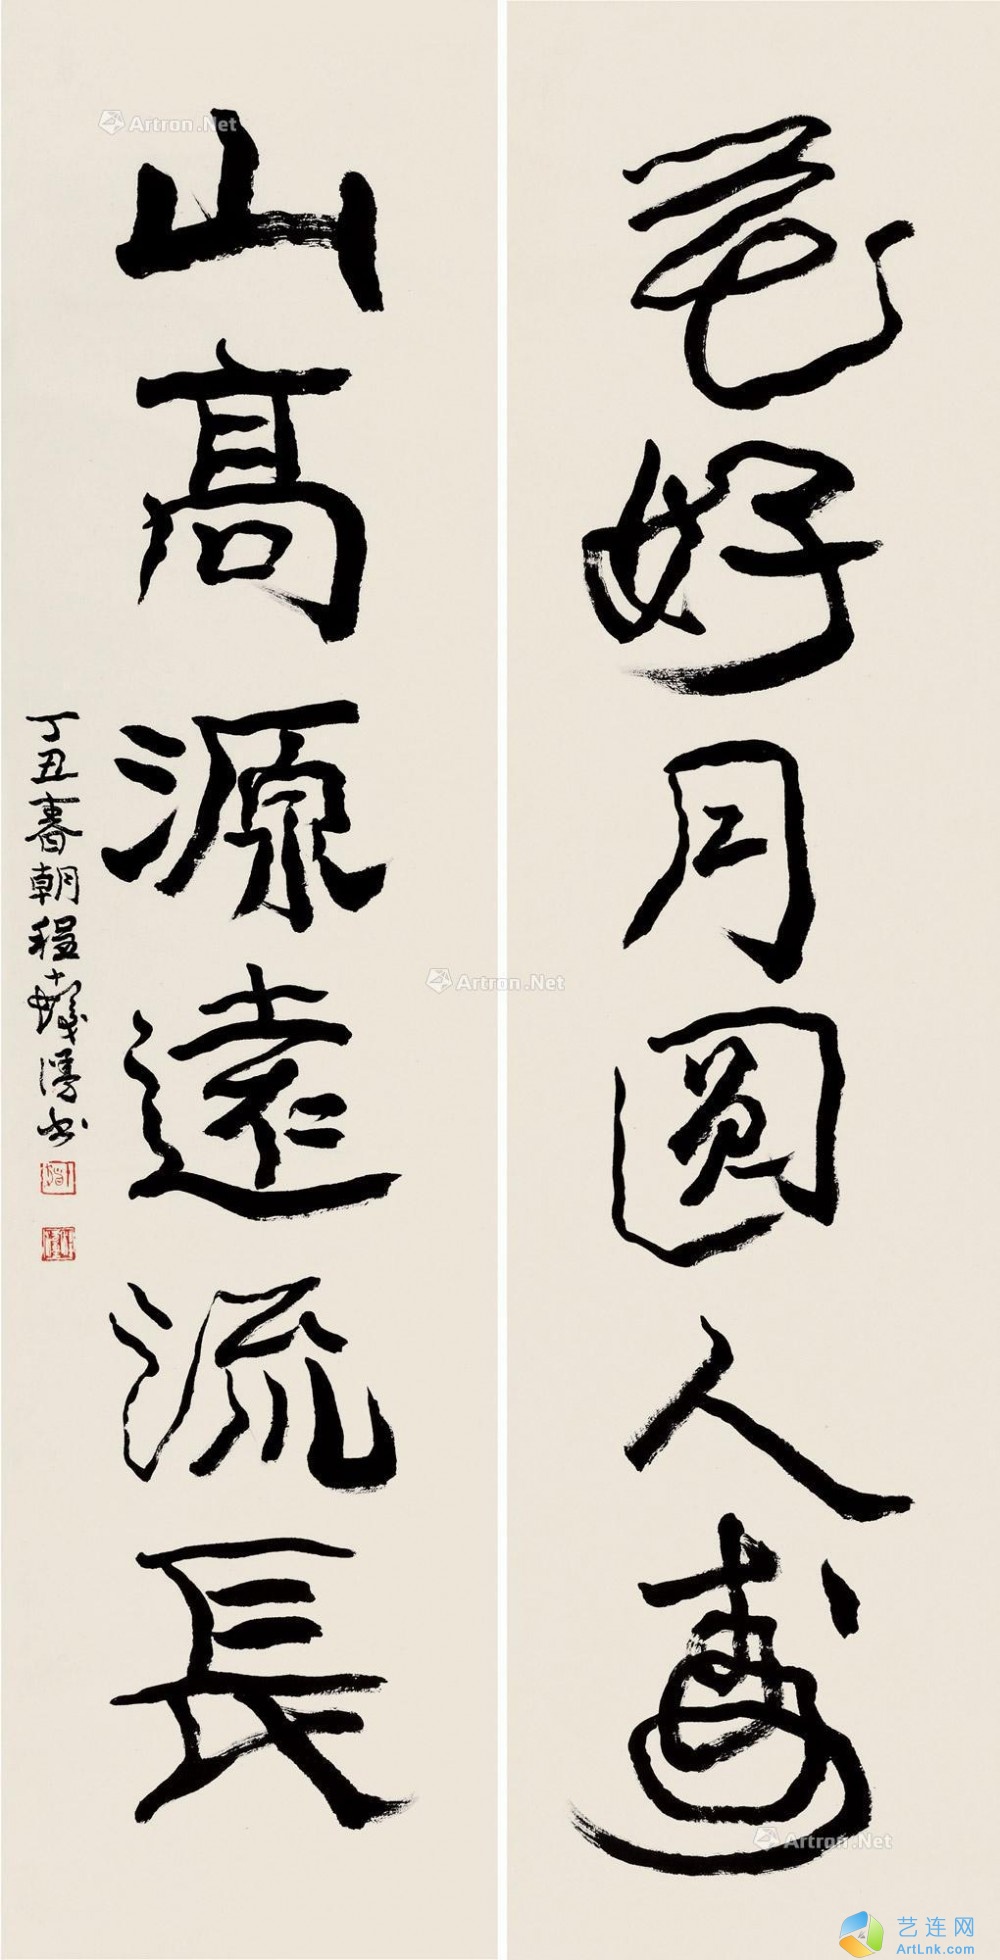 花好月圓人壽
山髙源遠流長
丁丑春朝程十髮漫书
Artron.Net
Artron.Net
Artron.Net
艺连网
ArtLnk.com